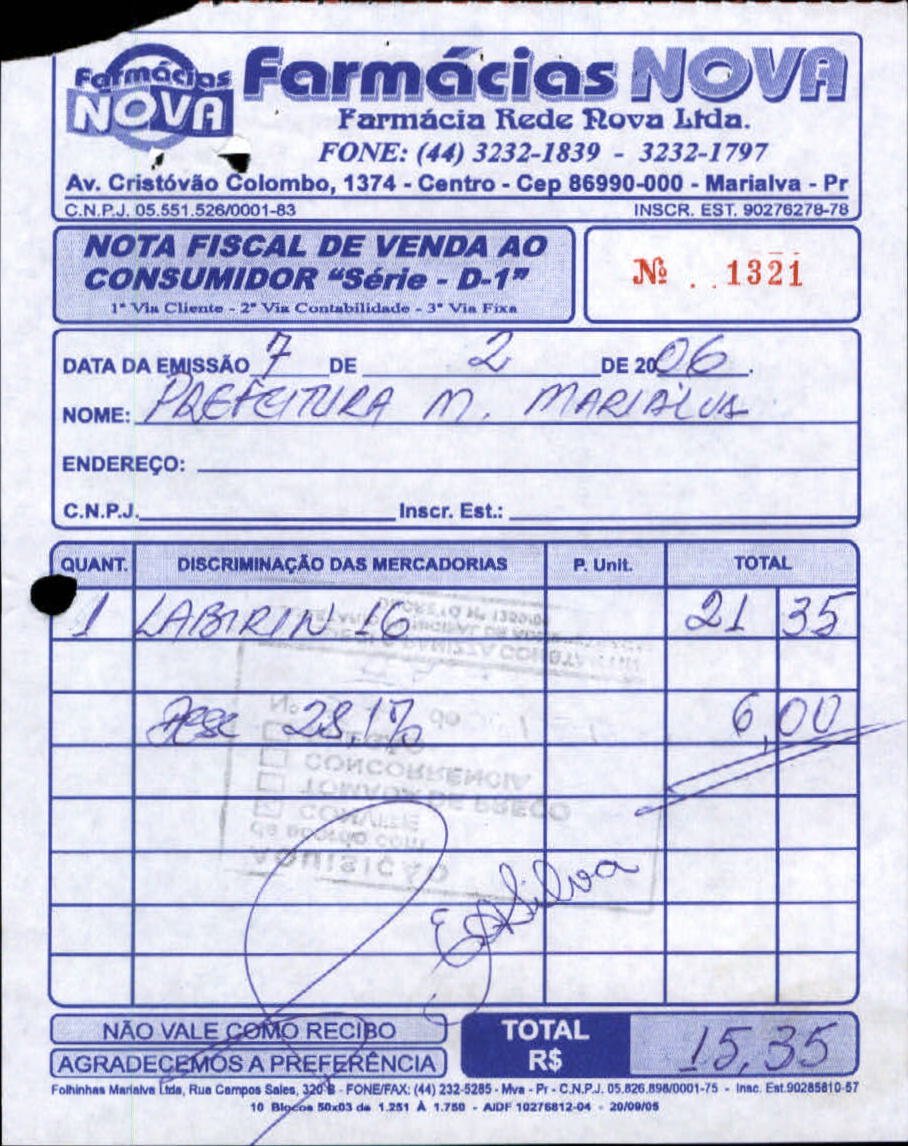 Farmácias NOVA
Farmácias NOVA
Farmácia Rede Nova Ltda.
FONE: (44) 3232-1839 - 3232-1797
Av. Cristóvão Colombo, 1374 - Centro - Cep 86990-000 - Marialva - Pr
C.N.P.J. 05.551.526/0001-83 INSCR. EST. 90276278-78
NOTA FISCAL DE VENDA AO
CONSUMIDOR "Série - D-1"
1ª Via Cliente - 2ª Via Contabilidade - 3ª Via Fixa
Nº 1321
DATA DA EMISSÃO 7 DE 2 DE 2006.
NOME: PREFEITURA M. MARIALVA
ENDEREÇO:
C.N.P.J. Inscr. Est.:
QUANT. DISCRIMINAÇÃO DAS MERCADORIAS P. Unit. TOTAL
1 LABIRIN 16 21 35
28,1% 6,00
CONCORRÊNCIA
TOMADA DE PREÇO
CONVITE
de acordo com
AQUISIÇÃO
ESilva
NÃO VALE COMO RECIBO
AGRADECEMOS A PREFERÊNCIA
TOTAL
R$ 15,35
Folhinhas Marialva Ltda, Rua Campos Sales, 320-B - FONE/FAX: (44) 232-5285 - Mva - Pr - C.N.P.J. 05.826.898/0001-75 - Insc. Est.90285810-57
10 Blocos 50x03 de 1.251 À 1.750 - AIDF 10276812-04 - 20/09/05